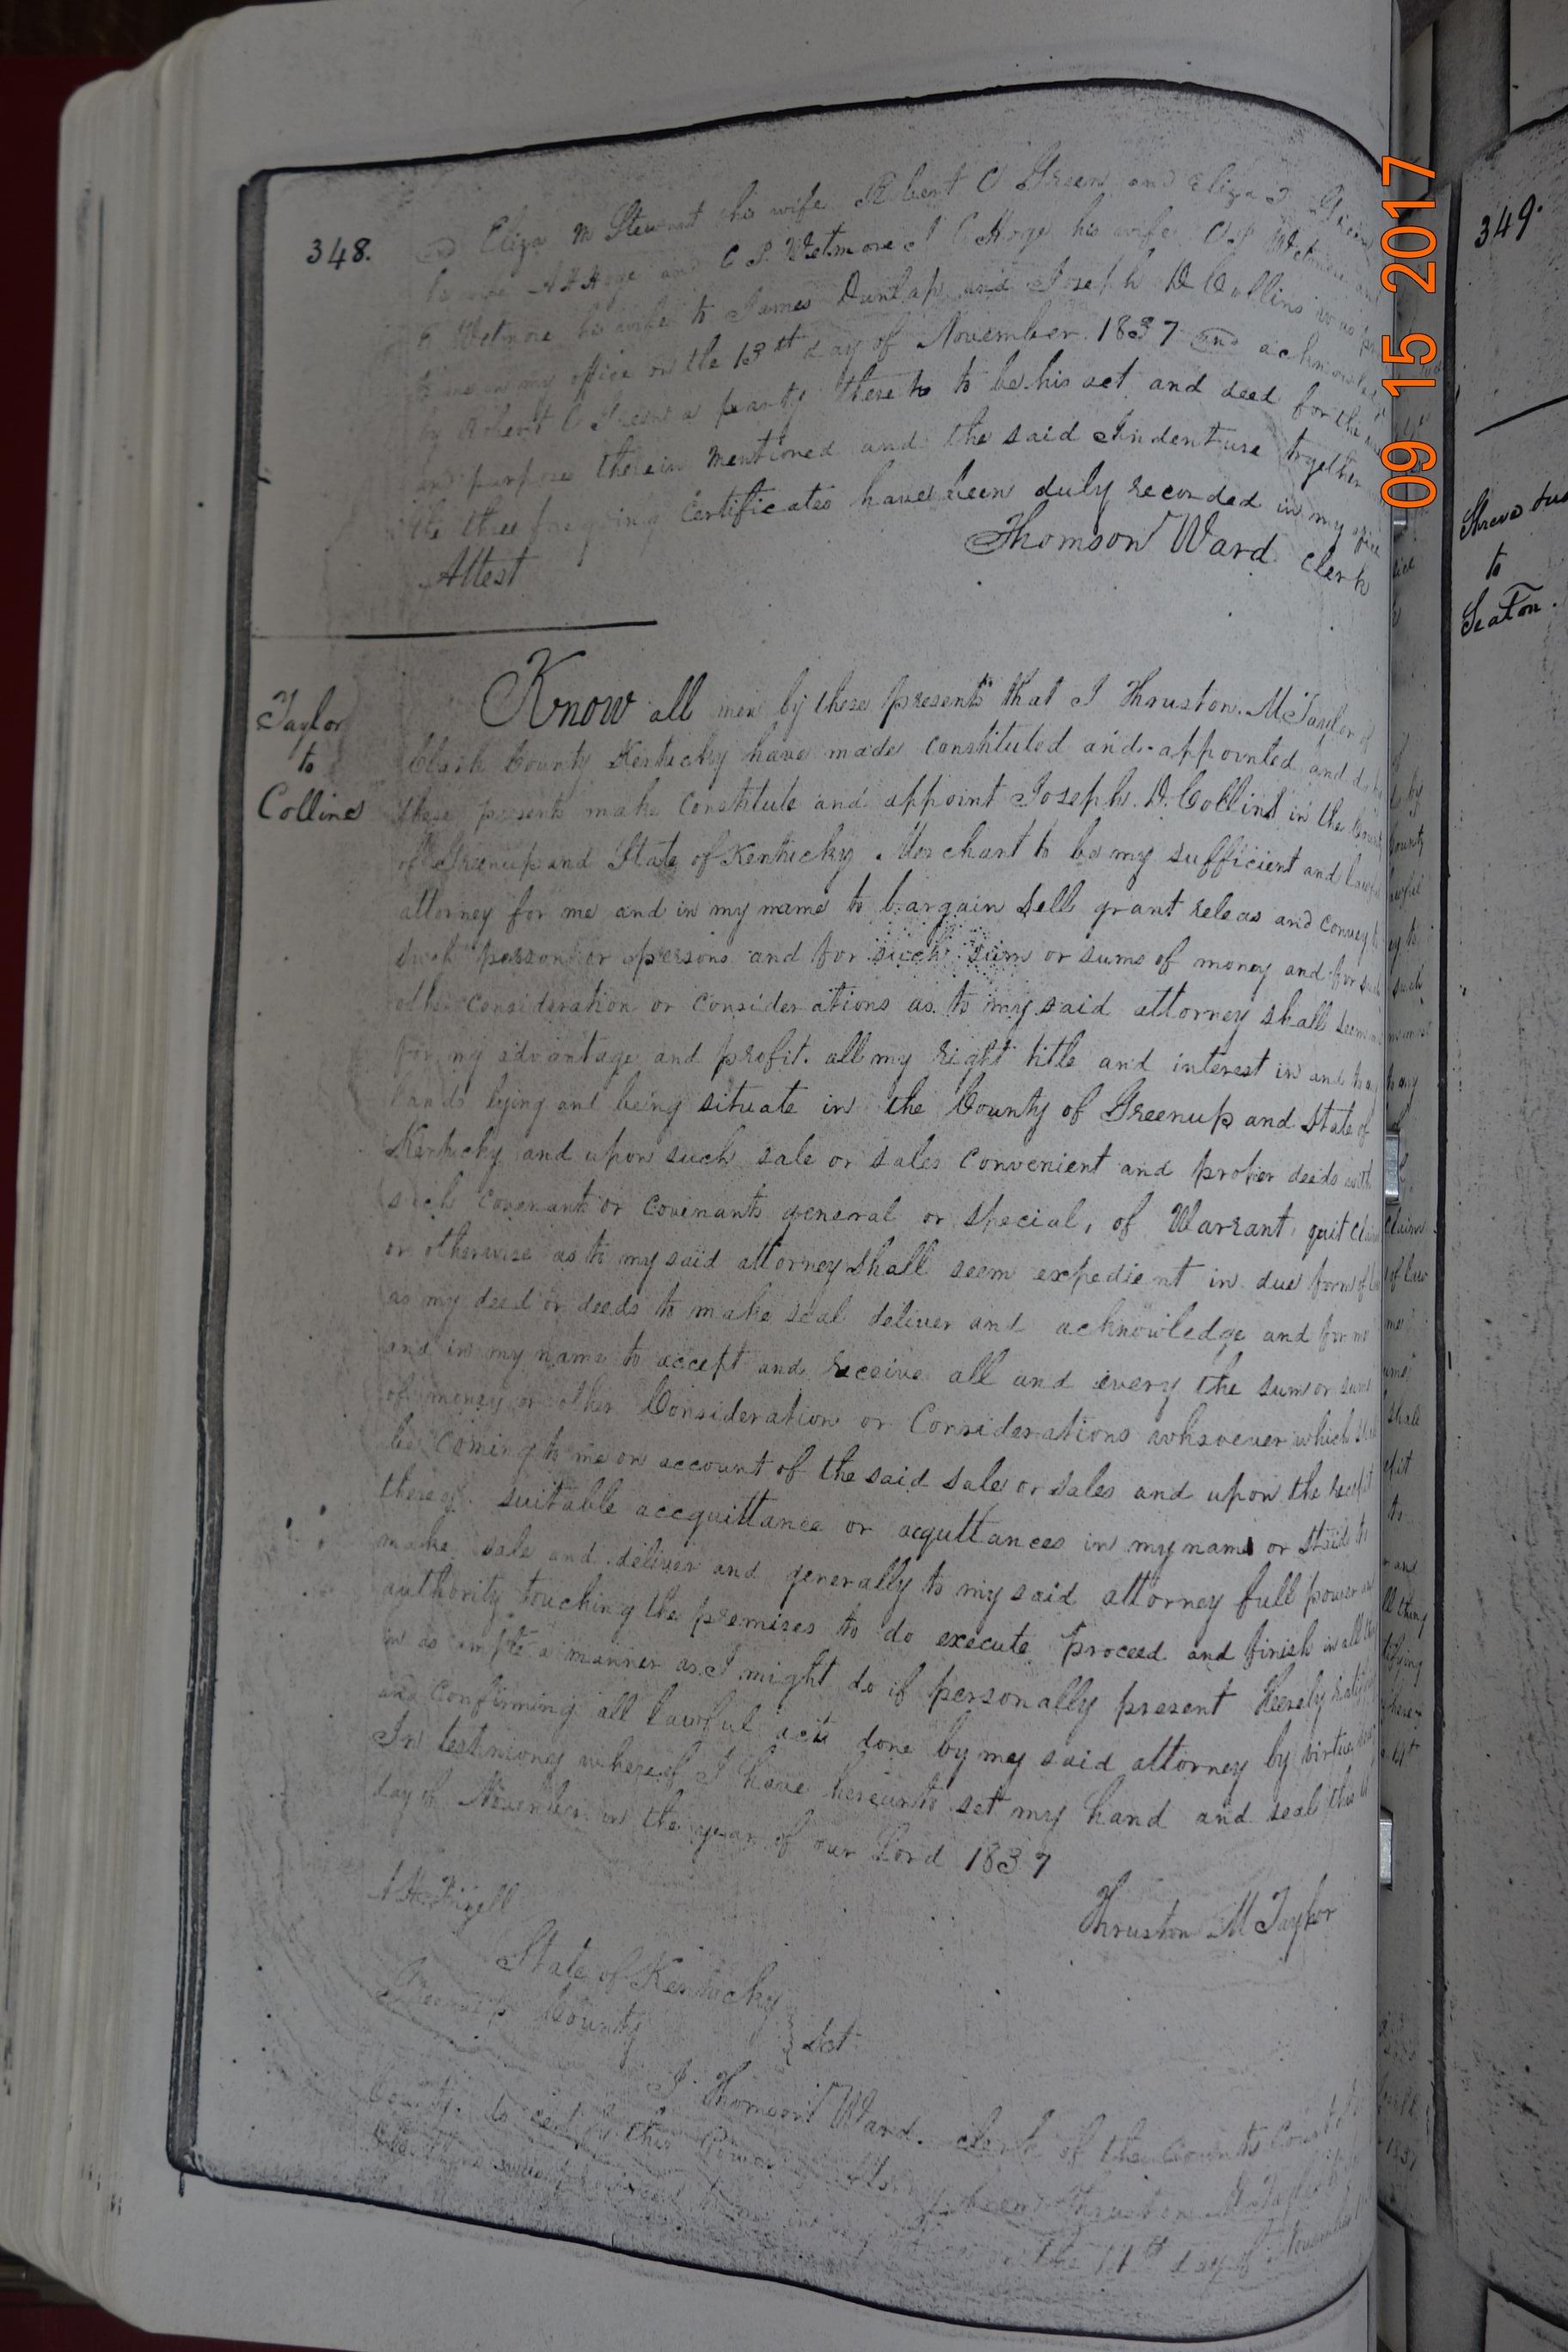 348.
Eliza M Stewart his wife Robert C Green and Eliza I Green
his wife A H Hoge and C S. Wetmore I C Hoge his wife C S Wetmore and
E Wetmore his wife to James Dunlap and Joseph D Collins was
in my office on the 13th day of November 1837 and acknowled
by Robert C Green a party there to to be his act and deed for the
and purposes therein mentioned and the said Indenture together
the three foregoing Certificates have been duly recorded in my office
Attest
Thomson Ward clerk
Taylor
to
Collins
Know all men by these presents that I Thruston. M Taylor of
Clark County Kentucky have made constituted and appointed and do by
these presents make Constitute and appoint Joseph. D. Collins in the County
of Greenup and State of Kentucky Merchant to be my sufficient and lawful
attorney for me and in my name to bargain sell grant releas and convey to
such person or persons and for such sum or sums of money and for such
other consideration or considerations as to my said attorney shall seem
for my advantage and profit. all my right title and interest in and to any
lands lying and being situate in the County of Greenup and State of
Kentucky and upon such sale or sales convenient and proper deeds with
such Covenant or covenants general or special, of Warrant, quit claim
or otherwise as to my said attorney shall seem expedient in due form of law
as my deed or deeds to make seal deliver and acknowledge and for me
and in my name to accept and receive all and every the sum or sums
of money or other Consideration or Considerations whsoever which shall
be coming to me on account of the said sale or sales and upon the receipt
thereof. suitable accquittance or acquttances in my name or to
make sale and deliver and generally to my said attorney full power and
authority touching the premises to do execute proceed and finish in all thing
in as ample a manner as I might do if personally present hereby ratifying
and confirming all lawful acts done by my said attorney by virtue here
In testimony whereof I have hereunto set my hand and seal this
day of November in the year of our Lord 1837
Thruston M Taylor
State of Kentucky
Greenup County } Sct
I Thomson Ward. clerk of the County Court
County. do certify this Power Attorney from Thruston M Taylor
in my office on the 14th day of November
349.
to
Seaton.
09 15 2017